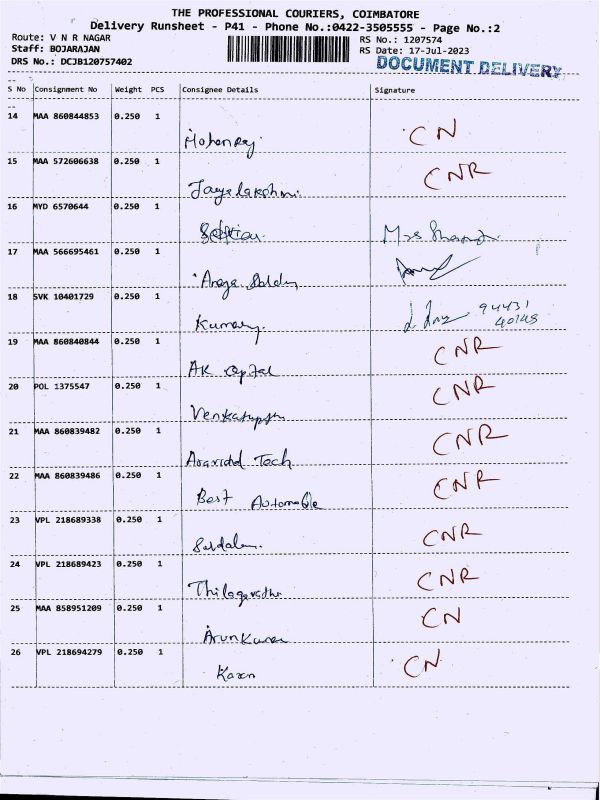 THE PROFESSIONAL COURIERS, COIMBATORE
Delivery Runsheet - P41 - Phone No.:0422-3505555 - Page No.:2
Route: V N R NAGAR
RS No.: 1207574
Staff: BOJARAJAN
RS Date: 17-Jul-2023
DRS No.: DCJB120757402
DOCUMENT DELIVERY
S No Consignment No Weight PCS Consignee Details Signature
14 MAA 860844853 0.250 1 CN
Mohanraj
15 MAA 572606638 0.250 1 CNR
Jayalakshmi
16 MYD 6570644 0.250 1
17 MAA 566695461 0.250 1
18 SVK 10401729 0.250 1 94431
Kumar 40148
19 MAA 860840844 0.250 1 CNR
AK Capital
20 POL 1375547 0.250 1 CNR
21 MAA 860839482 0.250 1 CNR
Tech
22 MAA 860839486 0.250 1 CNR
Best Automobile
23 VPL 218689338 0.250 1 CNR
24 VPL 218689423 0.250 1 CNR
25 MAA 858951209 0.250 1 CN
Arunkumar
26 VPL 218694279 0.250 1 CN
Karan